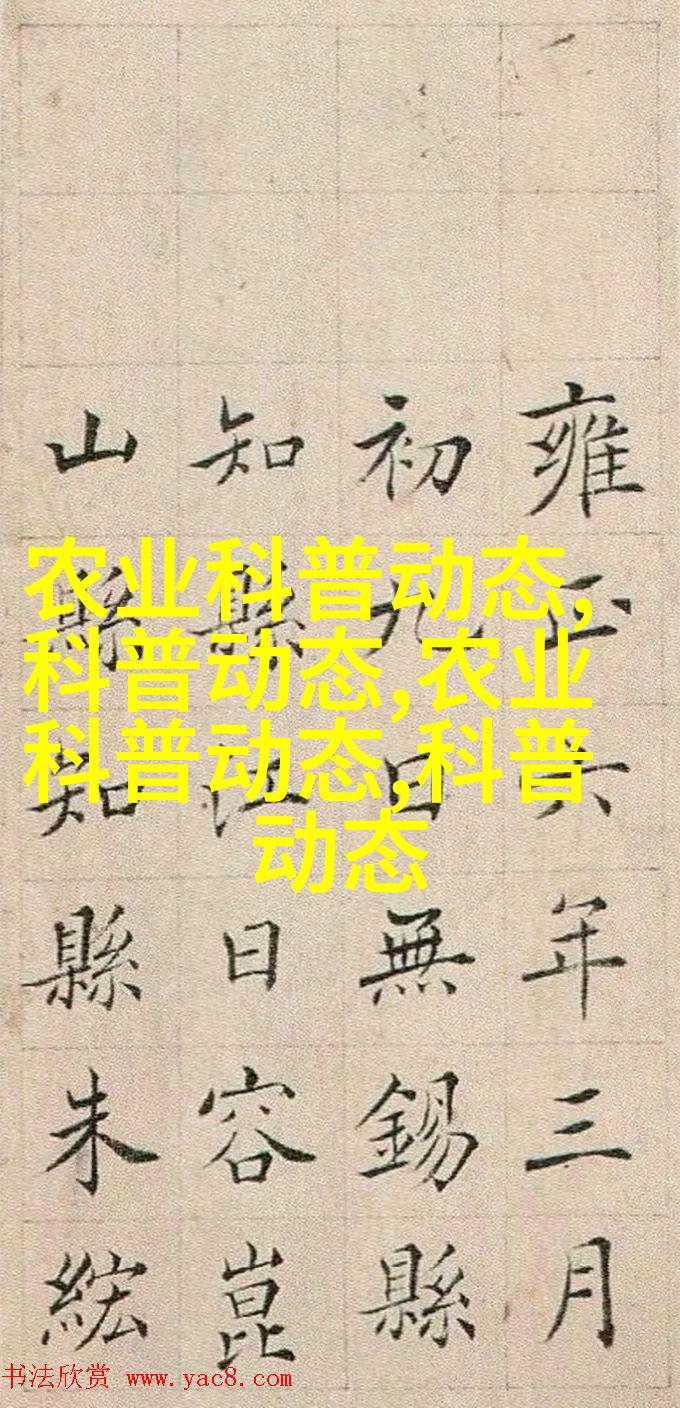 雍正六年三月
初九日無錫縣
知縣江日容崑
山縣知縣朱綋
农业科普动态,
科普动态,农业
科普动态,科普
动态
书法欣赏 www.yac8.com